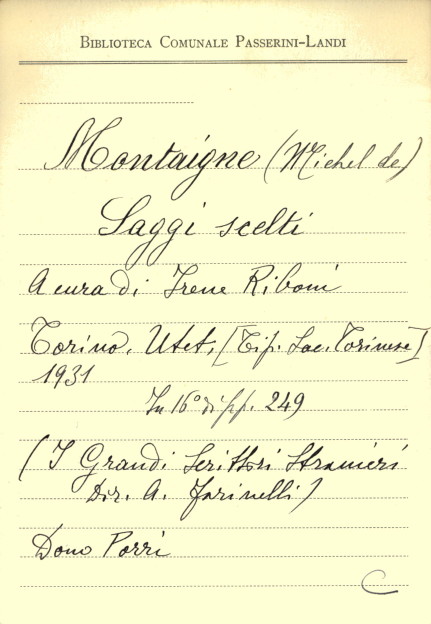 BIBLIOTECA COMUNALE PASSERINI-LANDI
Montaigne (Michel de)
Saggi scelti
A cura di Irene Riboni
Torino, Utet, [Tip. Soc. Torinese]
1931
In 16° di pp. 249
(I Grandi Scrittori Stranieri
Dir. A. Farinelli)
Dono Porri
C